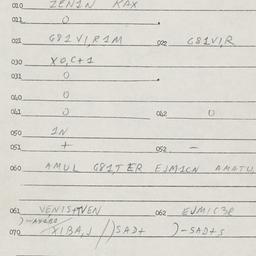 010 ZEN1N KAX
011 0
021 G81V1,R1M 022 G81V1,R
030 X0,C+1
031 0
040 0
041 0 042 0
050 1N
051 + 052 -
060 AMUL G81,T ER EJM1CN AMATU
061 VENIS+VEN 062 EJMIC3R
070 X1BA,J /)SAD+ )-SAD+S